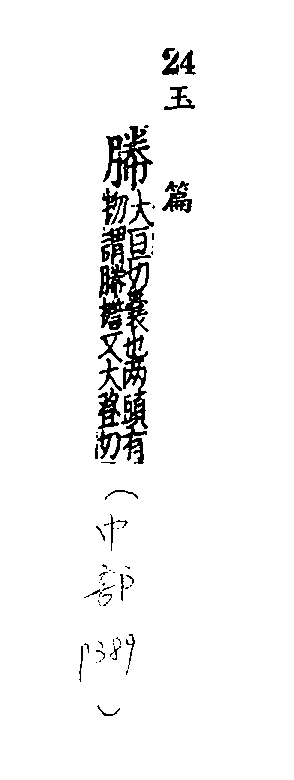 24玉篇
幐
大亘切囊也两頭有
物謂幐擔又大登切
(巾部 p389)